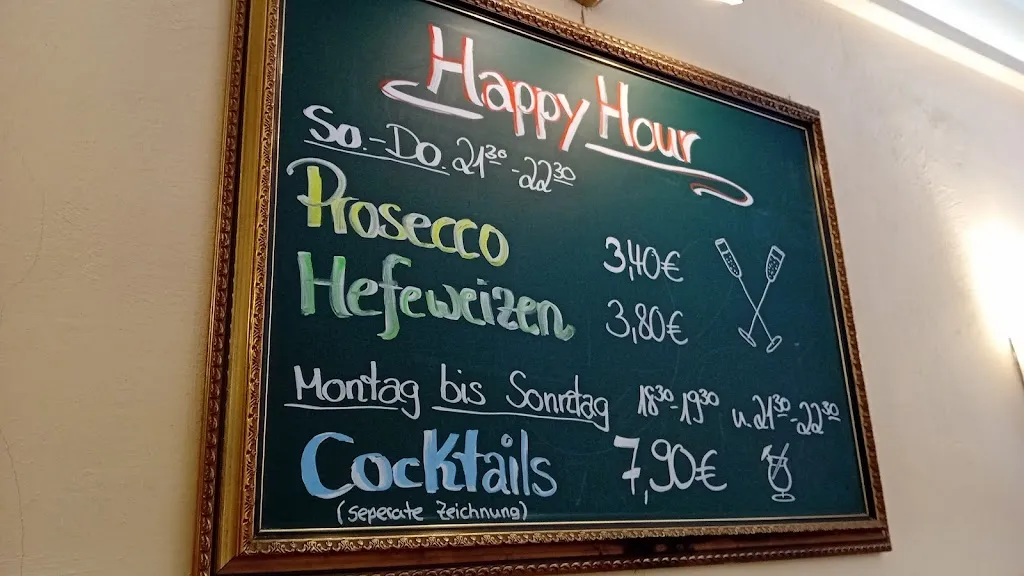 Happy Hour
So.-Do. 21³⁰-22³⁰
Prosecco 3,40€
Hefeweizen 3,80€
Montag bis Sonntag 18³⁰-19³⁰ u. 21³⁰-22³⁰
Cocktails 7,90€
(seperate Zeichnung)